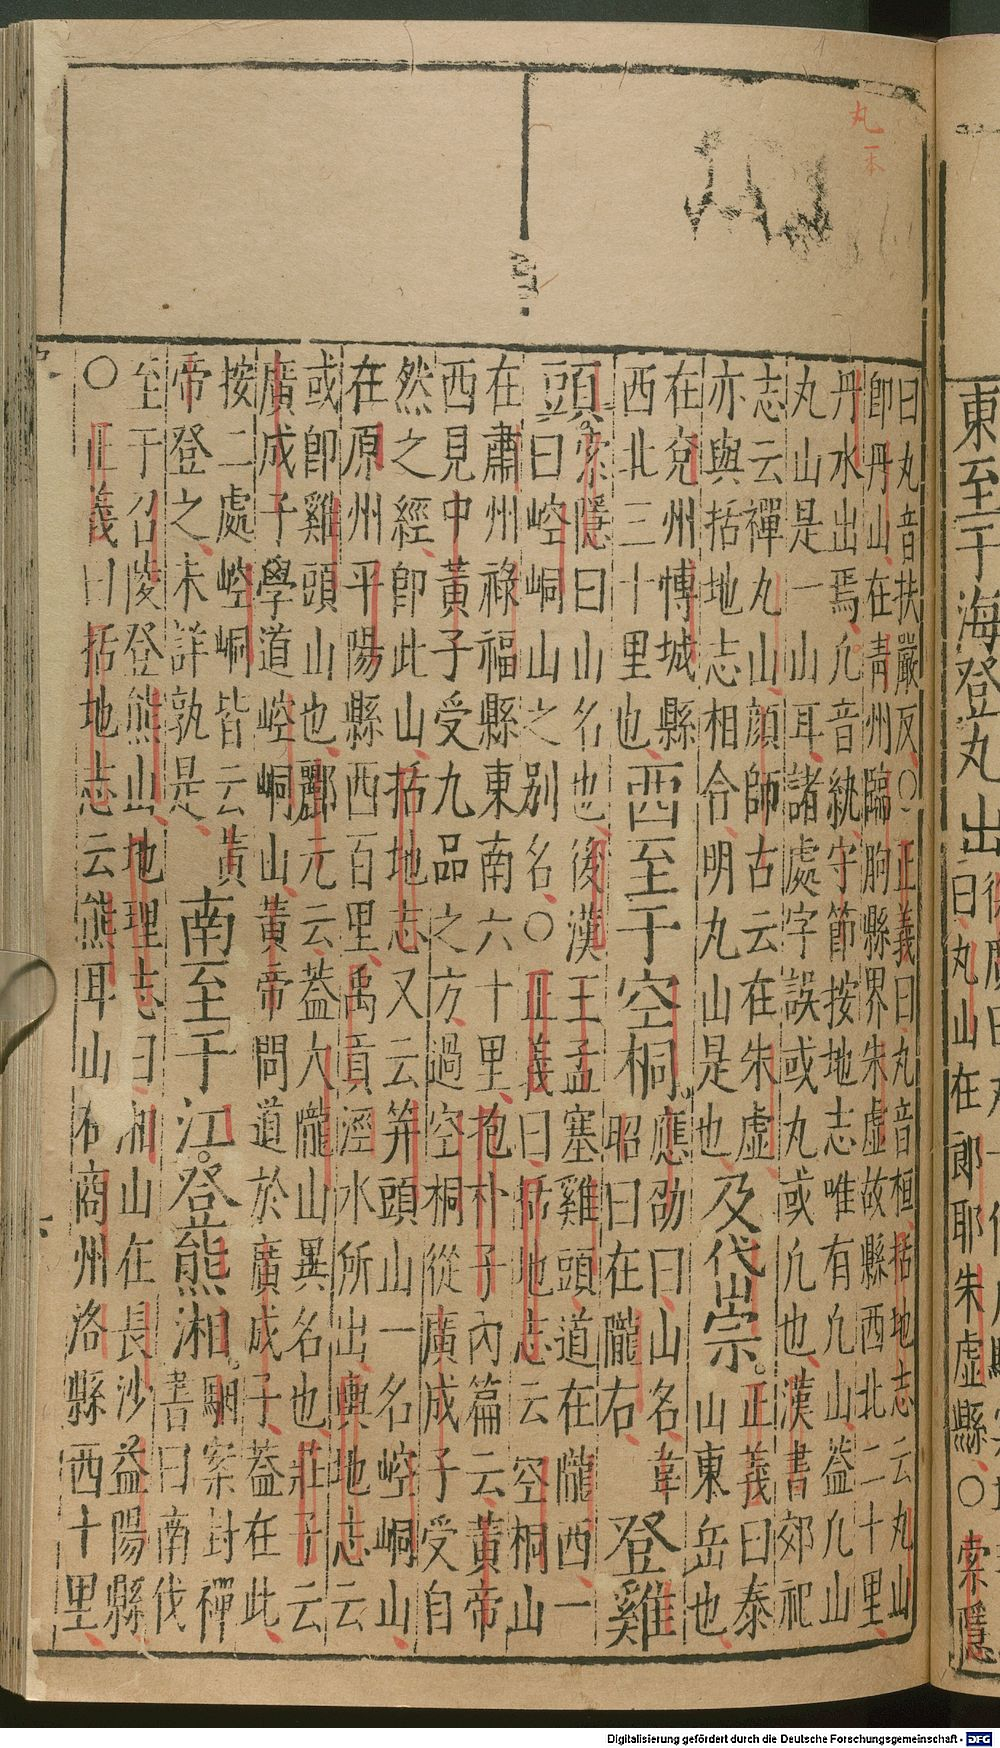 東至于海登丸山
曰丸山在郎耶朱虛縣○索隱
丸一本
曰丸音扶嚴反○正義曰丸音桓括地志云丸山
卽丹山在青州臨朐縣界朱虛故縣西北二十里
丹水出焉凢音紈守節按地志唯有凢山葢凢山
丸山是一山耳諸處字誤或丸或凢也漢書郊祀
志云禪丸山顔師古云在朱虛
亦與括地志相合明丸山是也
及岱宗
正義曰泰
山東岳也
在兗州博城縣
西北三十里也
西至于空桐
應劭曰山名韋
昭曰在隴右
登雞
頭
索隱曰山名也後漢王孟塞雞頭道在隴西一
曰崆峒山之別名○正義曰括地志云空桐山
在肅州祿福縣東南六十里抱朴子內篇云黃帝
西見中黃子受九品之方過空桐從廣成子受自
然之經卽此山括地志又云笄頭山一名崆峒山
在原州平陽縣西百里禹貢涇水所出輿地志云
或卽雞頭山也酈元云葢大隴山異名也莊子云
廣成子學道崆峒山黃帝問道於廣成子葢在此
按二處崆峒皆云黃
帝登之未詳孰是
南至于江登熊湘
駰案封禪
書曰南伐
至于召陵登熊山地理志曰湘山在長沙益陽縣
○正義曰括地志云熊耳山在商州洛縣西十里
Digitalisierung gefördert durch die Deutsche Forschungsgemeinschaft - DFG